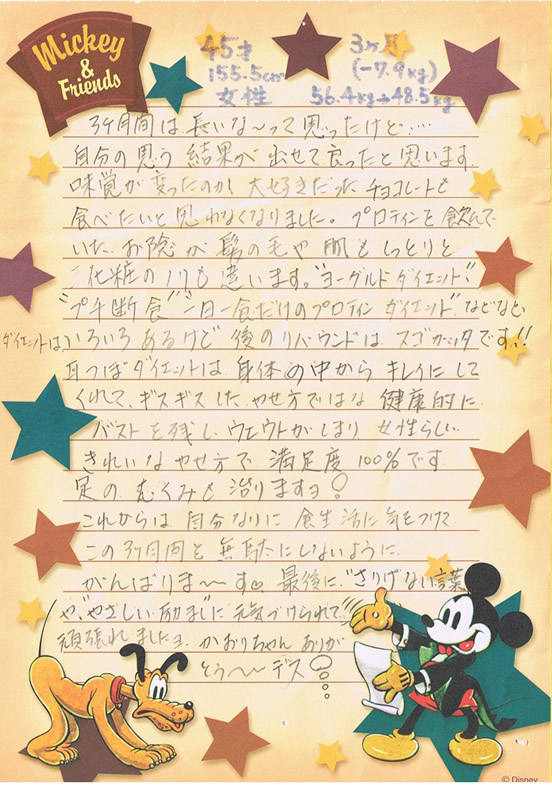 Mickey
&
Friends
45才 3ケ月
155.5cm (-7.9kg)
女性 56.4kg→48.5kg
3ケ月間は長いな〜って思ったけど……
自分の思う結果が出せて良ったと思います
味覚が変ったのか、大好きだったチョコレートも
食べたいと思わなくなりました。プロティンを飲んで
いた、お陰か髪の毛や肌もしっとりと
化粧のノリも違います。"ヨーグルトダイエット"
"プチ断食" "一日一食だけのプロティンダイエット" などなど
ダイエットはいろいろあるけど 後のリバウンドはスゴカッタです!!
耳つぼダイエットは 身体の中から キレイにして
くれて、ギスギスした やせ方ではな 健康的に
バストを残し ウエストがしまり 女性らしい
きれいな やせ方で 満足度 100%です
足の むくみも 治りますョ!
これからは 自分なりに 食生活に気をつけて
この3ケ月間を 無駄にしないように
がんばりま〜〜す。最後に、"さりげない言葉
や、"やさしい励まし"に 元気づけられて
頑張れましたョ かおりちゃん ありが
とう〜〜デス!
© Disney